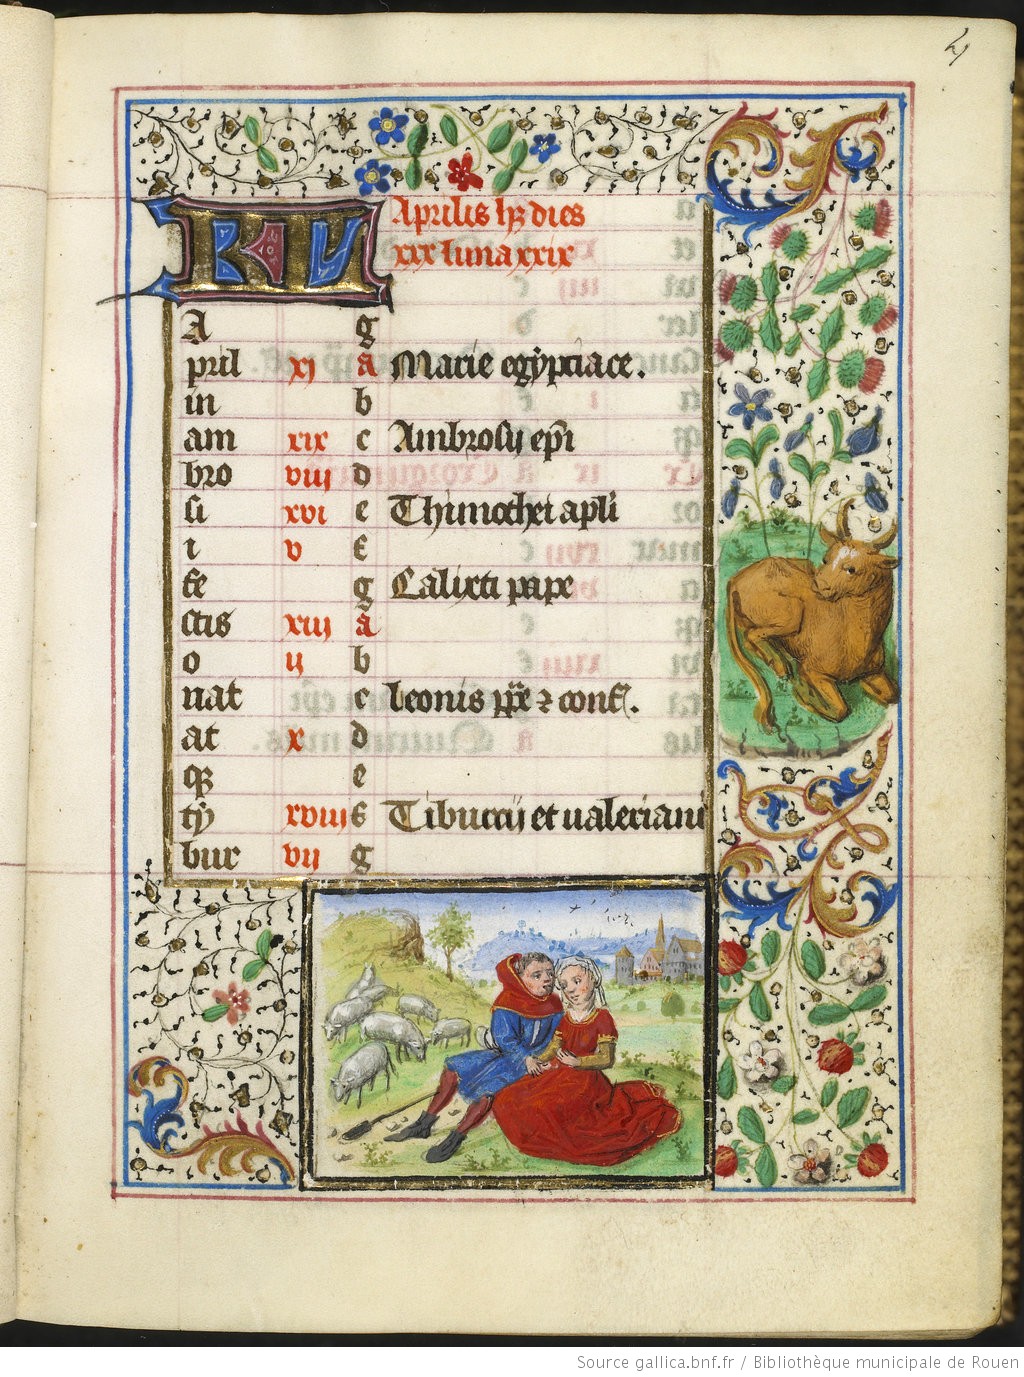 4
KL Aprilis hꝫ dies
xxx luna xxix
A g
pril xj a Marie egypciace.
in b
am xix c Ambrosij epi
bro viij d
si xvi e Thimothei apli
i v f
fe g Calixti pape
ctis xiij a
o ij b
nat c Leonis pp̄e ⁊ conf.
at x d
qꝫ e
ty xviij f Tiburcij et valeriani
bur vij g
Source gallica.bnf.fr / Bibliothèque municipale de Rouen